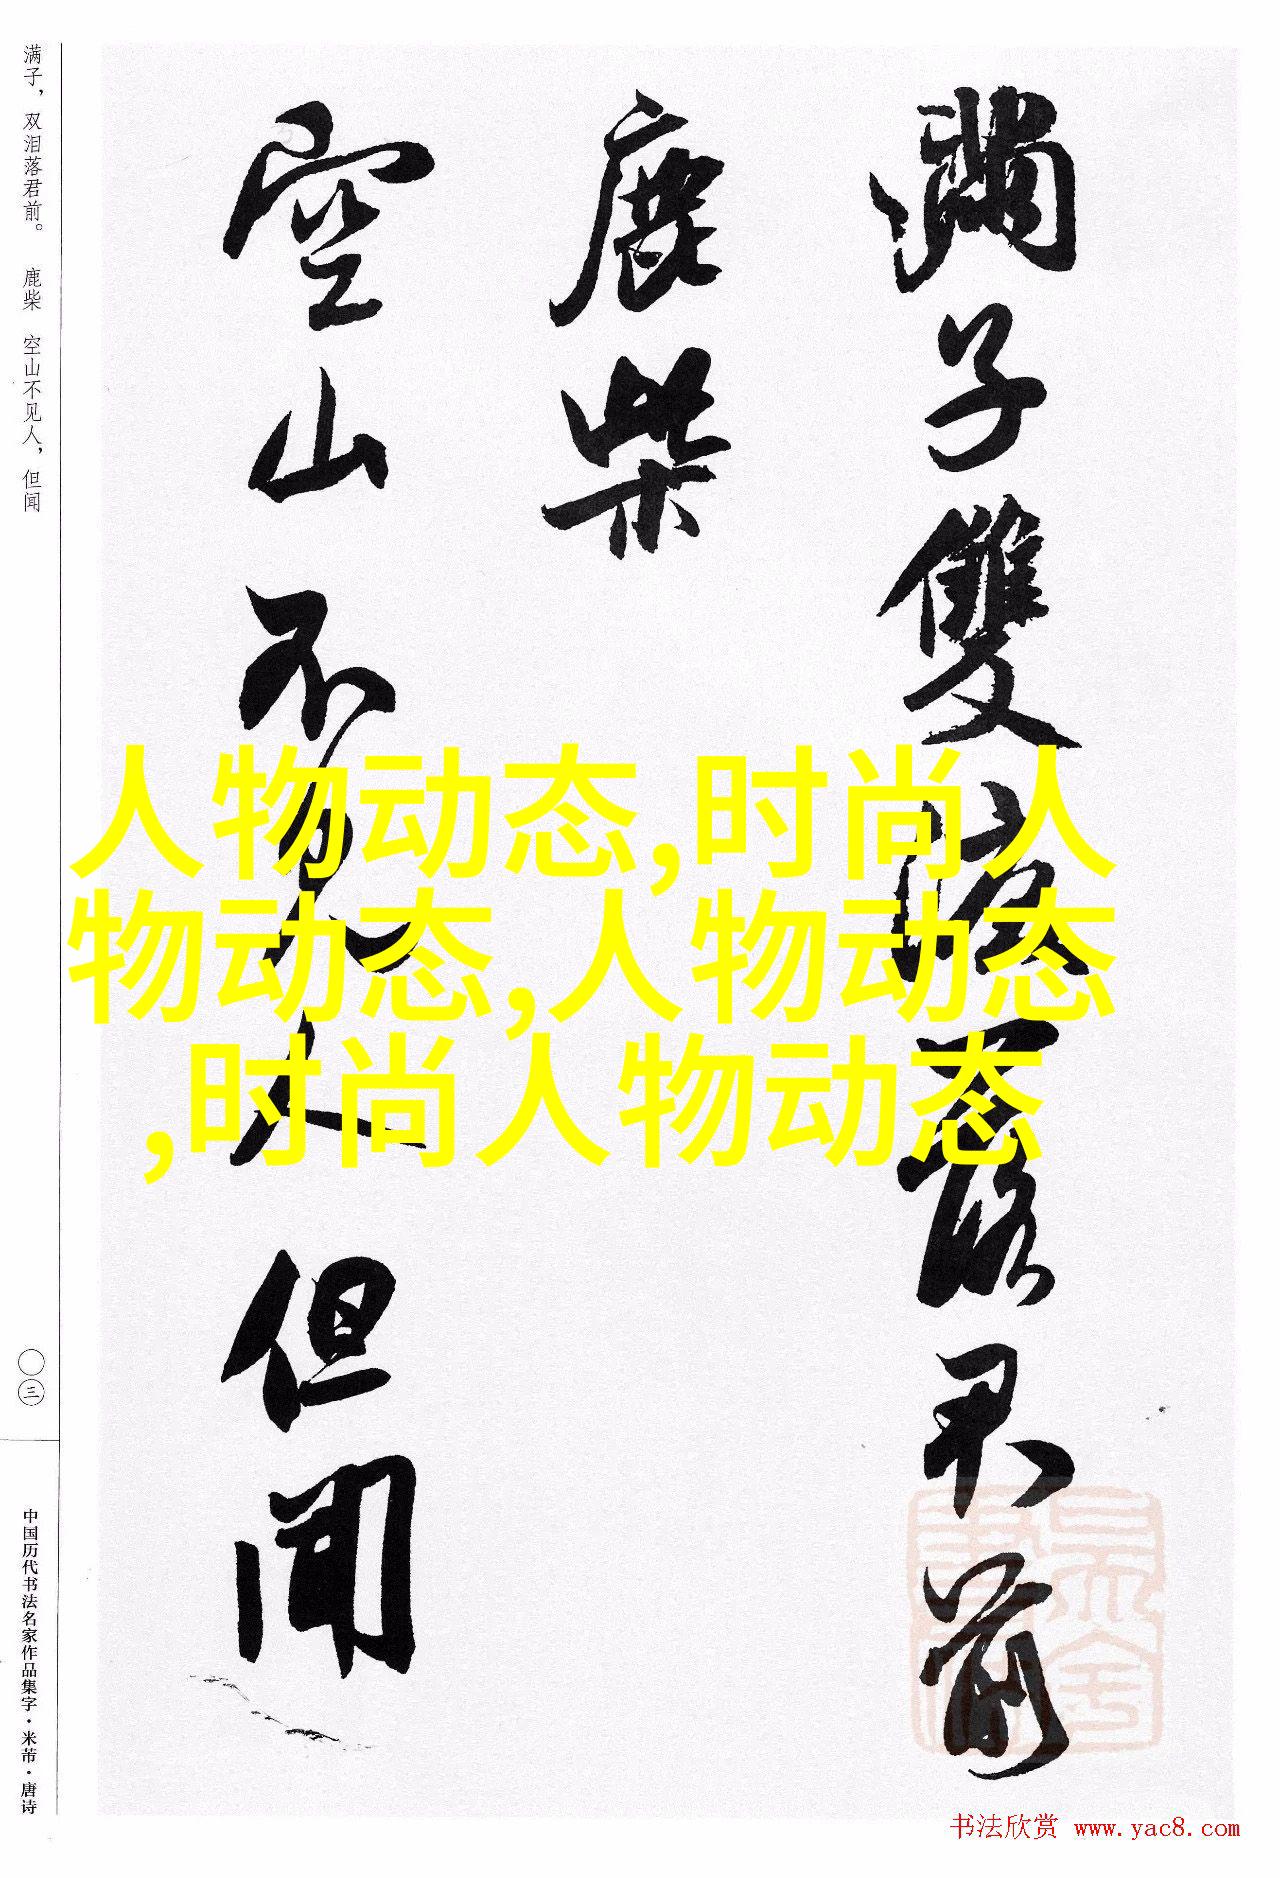 滿子雙淚落君前
鹿柴
空山不見人但聞
人物动态,时尚人
物动态,人物动态
,时尚人物动态
满子，双泪落君前。 鹿柴 空山不见人，但闻
〇三
中国历代书法名家作品集字·米芾·唐诗
书法欣赏 www.yac8.com